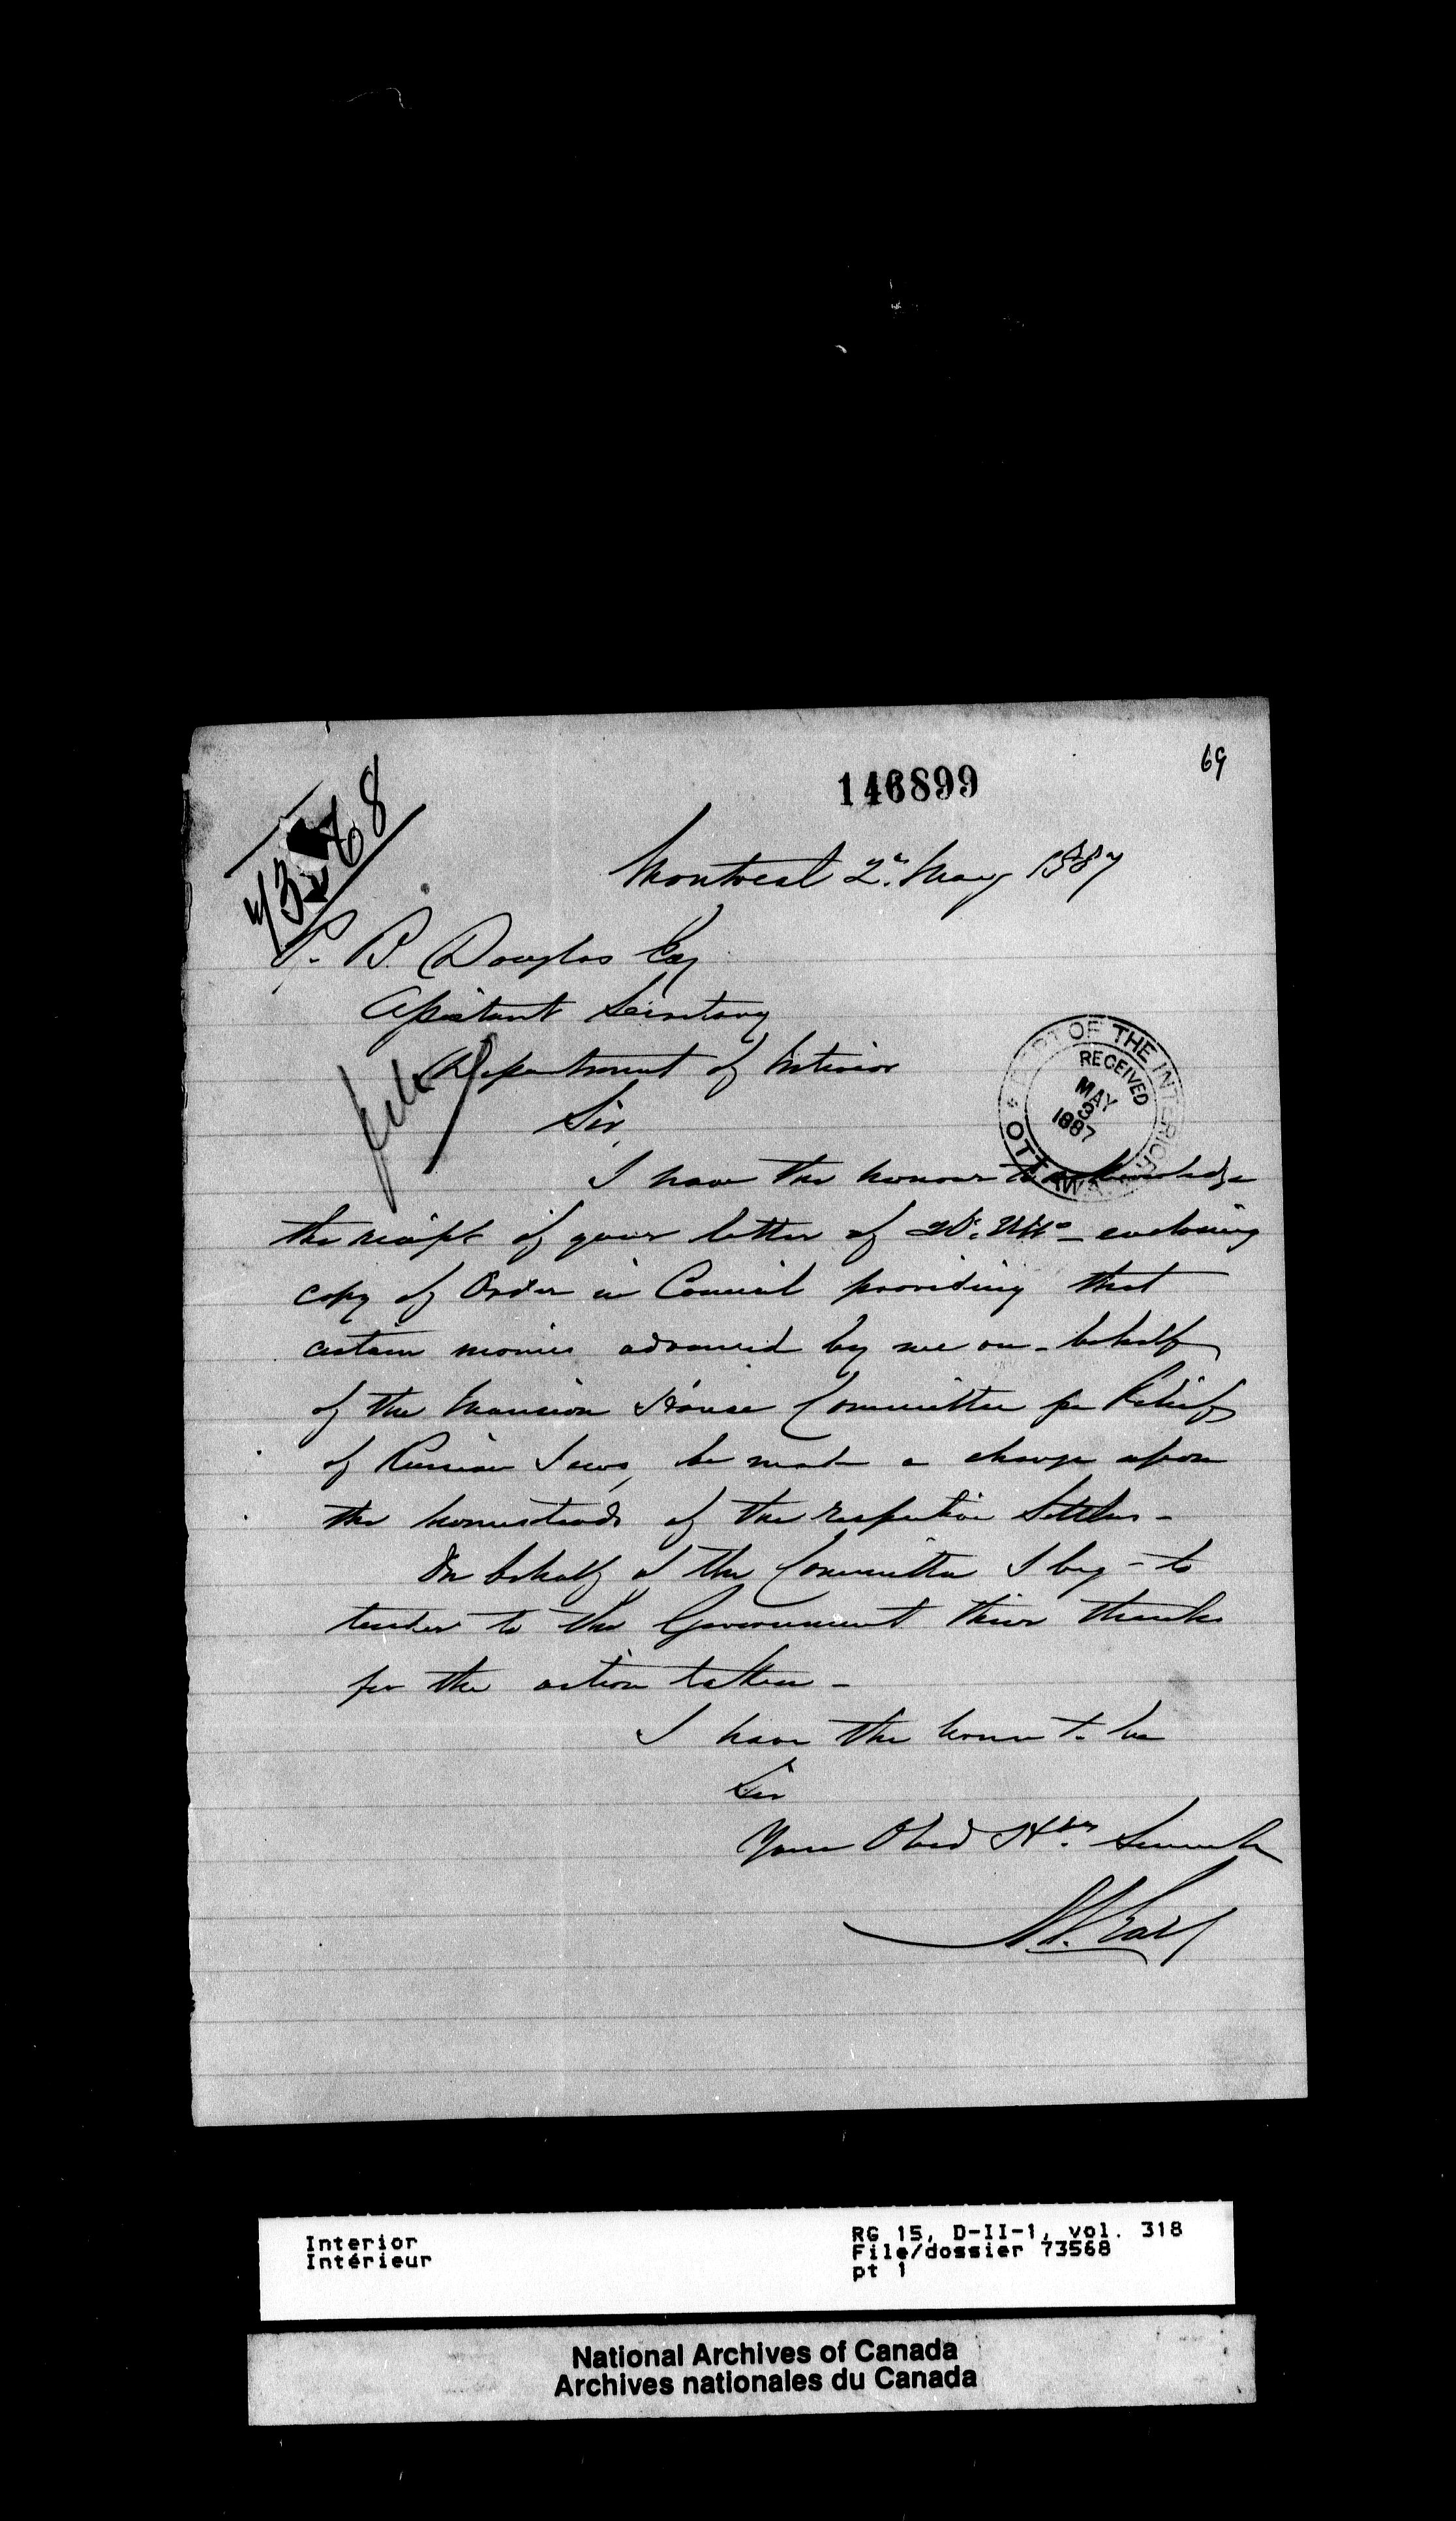 69
146899
73568
Montreal 2d. May 1887
P. B. Douglas Esq
Assistant Secretary
Department of Interior
Sir,
DEPT OF THE INTERIOR
RECEIVED
MAY
3
1887
OTTAWA
I have the honour to acknowledge
the receipt of your letter of Ulto- enclosing
copy of Order in Council providing that
certain monies advanced by me on behalf
of the Mansion House Committee for Relief
of Russian Jews, be made a charge upon
the homesteads of the respective Settlers -
On behalf of the Committee I beg - to
tender to the Government their thanks
for the action taken -
I have the honor to be
Sir
Your Obed Servant
Interior
Intérieur
RG 15, D-II-1, vol. 318
File/dossier 73568
pt 1
National Archives of Canada
Archives nationales du Canada